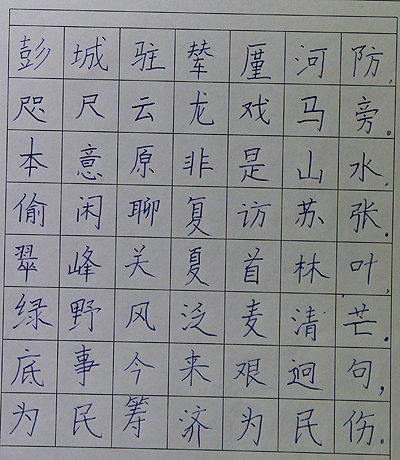 彭城驻辇厪河防,
咫尺云龙戏马旁。
本意原非是山水,
偷闲聊复访苏张。
翠峰关夏首林叶,
绿野风泛麦清芒。
底事今来艰迥句,
为民筹济为民伤。